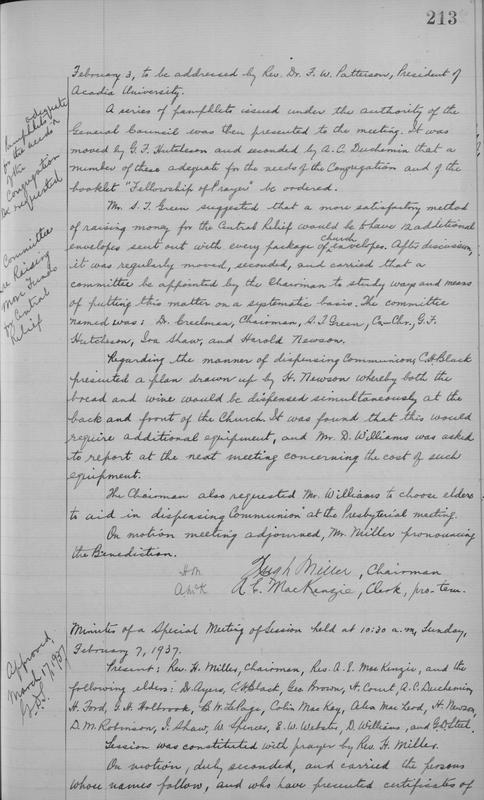 213
February 3, to be addressed by Rev. Dr. F. W. Patterson, President of
Acadia University.
A series of pamphlets issued under the authority of the
General Council was then presented to the meeting. It was
moved by G. F. Hutcheson and seconded by A. C. Duchemin that a
number of these adequate for the needs of the Congregation and of the
booklet "Fellowship of Prayer" be ordered.
adequate
pamphlets
for the needs
of the
Congregation
be requested
Mr. S. T. Green suggested that a more satisfactory method
of raising money for the Central Relief would be to have 12 additional
envelopes sent out with every package of church envelopes. After discussion,
it was regularly moved, seconded, and carried that a
committee be appointed by the Chairman to study ways and means
of putting this matter on a systematic basis. The committee
named was: Dr. Creelman, Chairman, S. T. Green, Co-Chr., G. F.
Hutcheson, Iva Shaw, and Harold Newson.
Committee
re Raising
More Funds
for Central
Relief
Regarding the manner of dispensing Communion, C. H. Black
presented a plan drawn up by H. Newson whereby both the
bread and wine would be dispensed simultaneously at the
back and front of the Church. It was found that this would
require additional equipment, and Mr. D. Williams was asked
to report at the next meeting concerning the cost of such
equipment.
The Chairman also requested Mr. Williams to choose elders
to aid in dispensing Communion at the Presbyterial meeting.
On motion meeting adjourned, Mr. Miller pronouncing
the Benediction.
H.M. Hugh Miller, Chairman
A. McK A. E. MacKenzie, Clerk, pro-tem.
Minutes of a Special Meeting of Session held at 10:30 a.m., Sunday,
February 7, 1937.
Approved,
March 17, 1937
Present: Rev. H. Miller, Chairman, Rev. A. E. MacKenzie, and the
following elders: D. Ayers, C. H. Black, Geo. Brown, H. Court, A. C. Duchemin,
H. Ford, G. H. Holbrook, B. W. LePage, Colin MacKay, Alva MacLeod, H. Newson,
D. M. Robinson, I. Shaw, W. Spencer, E. W. Webster, D. Williams, and G. D. Steel.
Session was constituted with prayer by Rev. H. Miller.
On motion, duly seconded, and carried the persons
whose names follow, and who have presented certificates of